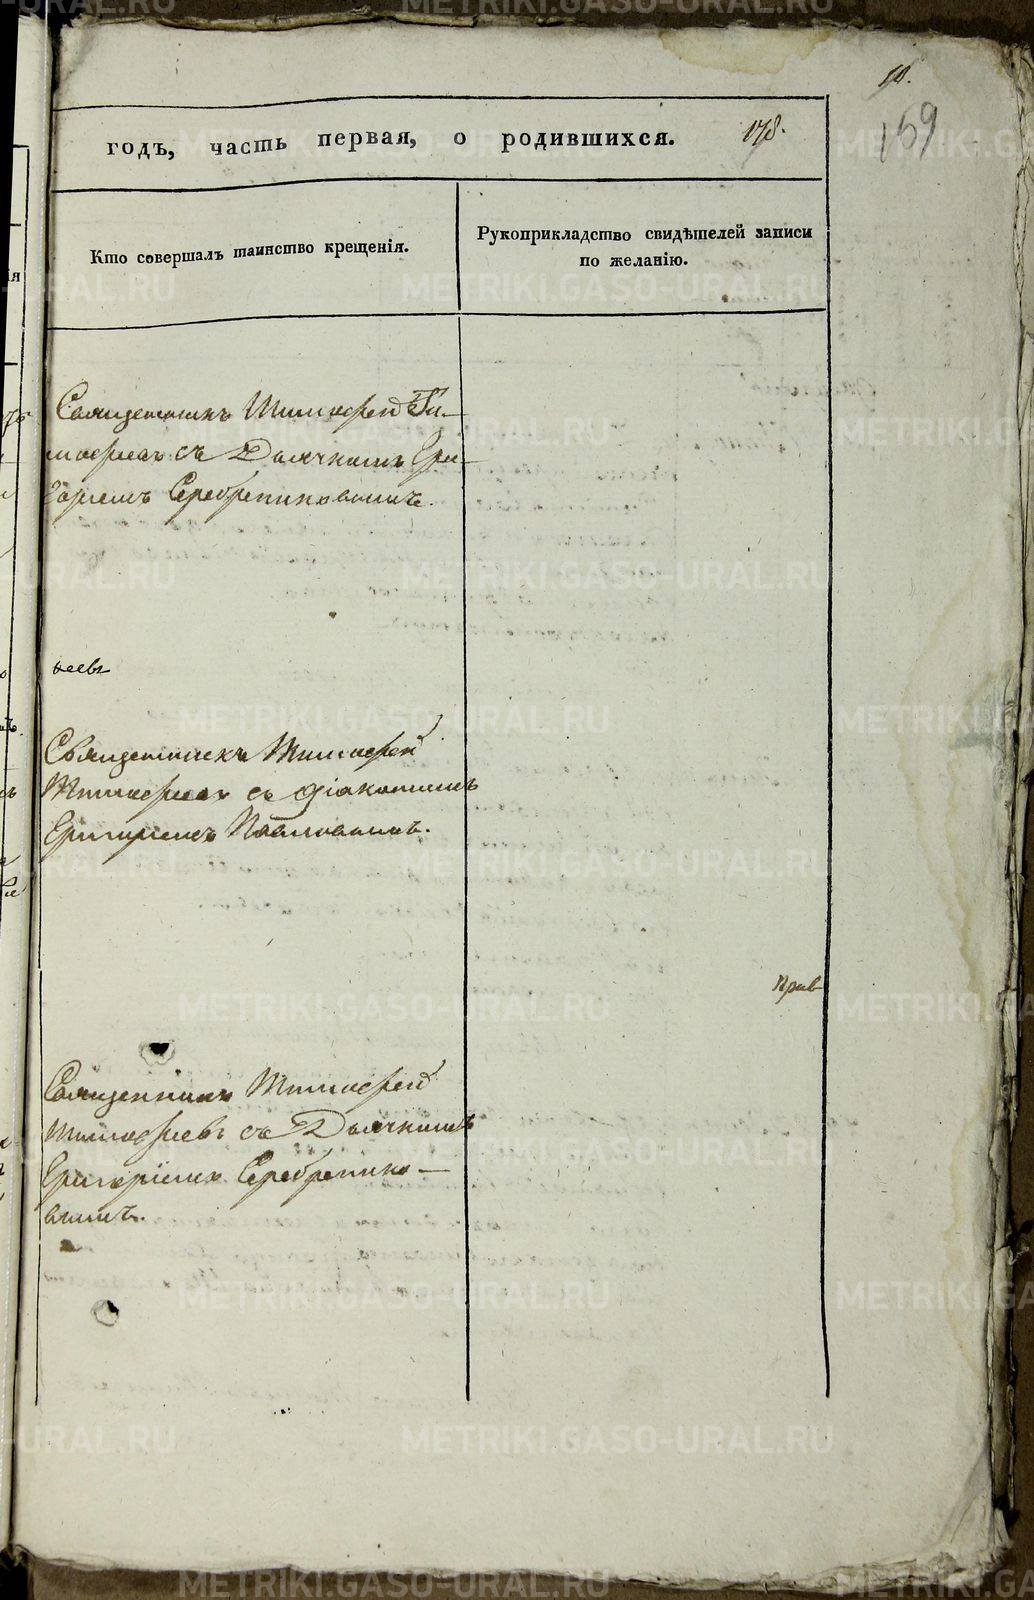 10.
159
годъ, часть первая, о родившихся. 178.
Кто совершалъ таинство крещенія.
Рукоприкладство свидѣтелей записи
по желанію.
Священникъ Тимофей Ти-
мофеевъ съ Дьячкомъ Гри-
горіемъ Серебрениковымъ.
Священникъ Тимофей
Тимофеевъ съ Діакономъ
Григоріемъ Павловымъ.
Прав
Священникъ Тимофей
Тимофеевъ съ Дьячкомъ
Григоріемъ Серебренико-
вымъ.
METRIKI.GASO-URAL.RU